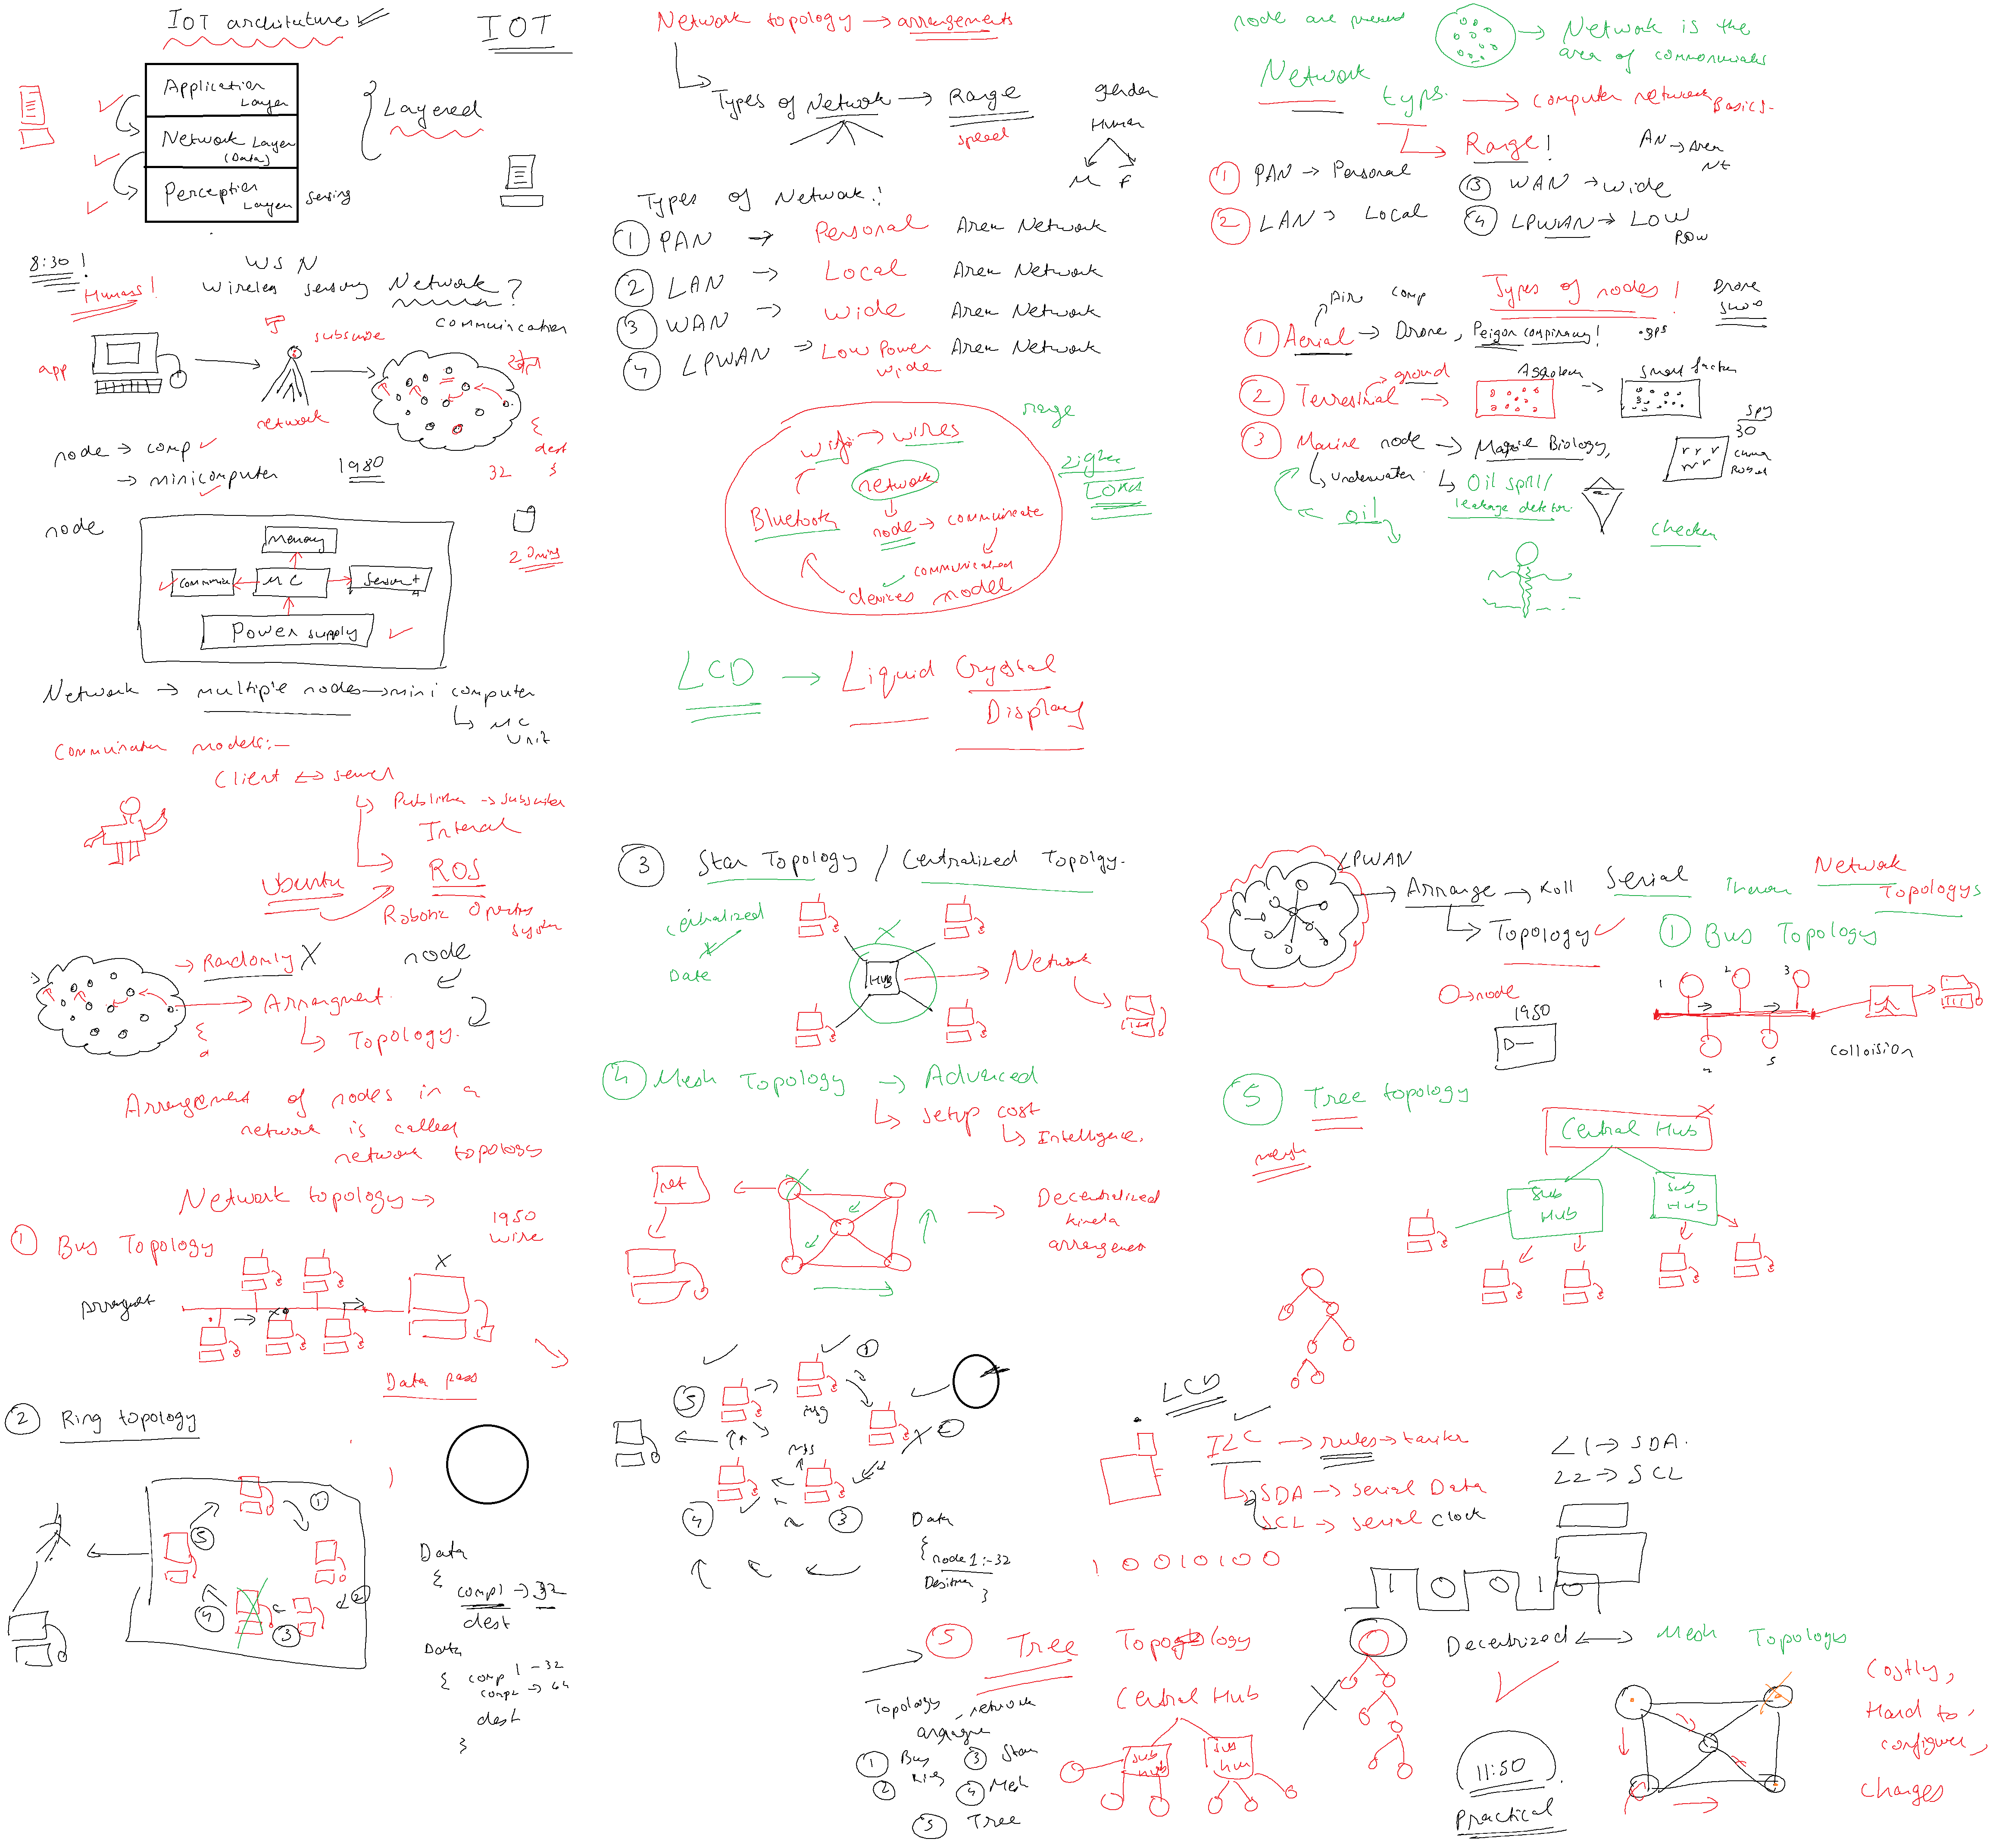 IOT archituture
IOT
Application
Layer
Network Layer
(Data)
Perception
Layer
sensing
Layered
8:30 !
Humans!
WSN
wireless sensing Network ?
communication
subscribe
app
network
dest
32
node → comp
→ minicomputer
1980
node
memory
MC
Sensor
Power supply
Network → multiple nodes → mini computer
MC
Unit
models:-
Client ↔ server
Publisher → subscriber
Ubuntu
ROS
Robotic Operating
System
→ Randomly X
node
→ Arrangment
Topology.
Arrangement of nodes in a
network is called
network topology
Network topology →
1 Bus Topology
1950
wire
X
Data pass
2 Ring topology
1
5
2
4
3
Data
{
comp1 → 32
dest
Data
{ comp 1 - 32
comp2 → 64
dest
}
Network topology → arrangements
Types of Network → Range
speed
gender
Human
M F
Types of Network!
1 PAN → Personal Area Network
2 LAN → Local Area Network
3 WAN → Wide Area Network
4 LPWAN → Low Power Area Network
wide
range
wifi → wires
network
Bluetooth
node → communicate
devices model
zigbee
LORA
LCD → Liquid Crystal
Display
3 Star Topology / Centralized Topolgy.
Centralized
X
Data
X
HUB
Network
4 Mesh Topology → Advanced
setup cost
Intelligence.
net
Decentralized
kinda
1
5
msg
msg
4
3
Data
{
node 1:-32
}
5 Tree Topology
Topology, network
1 Bus 3 Star
2 Ring 4 Mesh
5 Tree
Central Hub
Sub
Hub
Sub
Hub
node are present
Network is the
area of
Network
types → Computer network Basics-
Range!
AN → Area
1 PAN → Personal
3 WAN → wide
2 LAN → Local
4 LPWAN → Low
Types of nodes !
Drone
Air comp
1 Aerial → Drone, Peigon conspiracy! gps
2 Terrestrial →
ground
3 Marine node → Marine Biology,
Spy
30
underwater
Oil spill/
leakage detector
oil
Checker
LPWAN
Arrange → Roll
Serial
Network
Topologys
Topology
1 Bus Topology
node
1950
D
1
2
3
5
Colloision
5 Tree topology
mesh
X
Central Hub
Sub
Hub
Sub
Hub
LCD
I2C → rules →
SDA → Serial Data
SCL → Serial clock
21 → SDA.
22 → SCL
1 0 0 1 0 1 0 0
1 0 0 1 0
X
Decentrized ↔ Mesh Topologys
Costly,
Hard to
configure,
changes
11:50
Practical